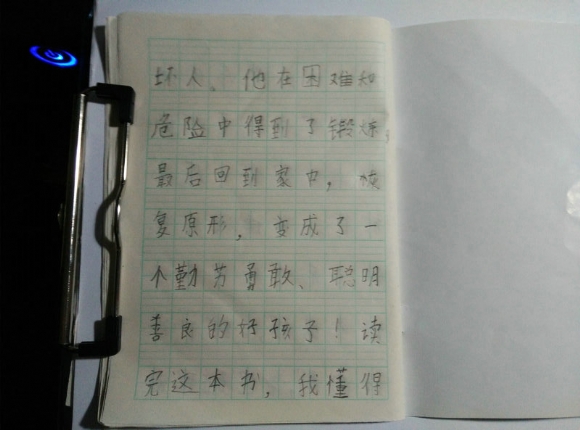 坏人、他在困难和
危险中得到了锻炼，
最后回到家中，恢
复原形，变成了一
个勤劳勇敢、聪明
善良的好孩子！读
完这本书，我懂得